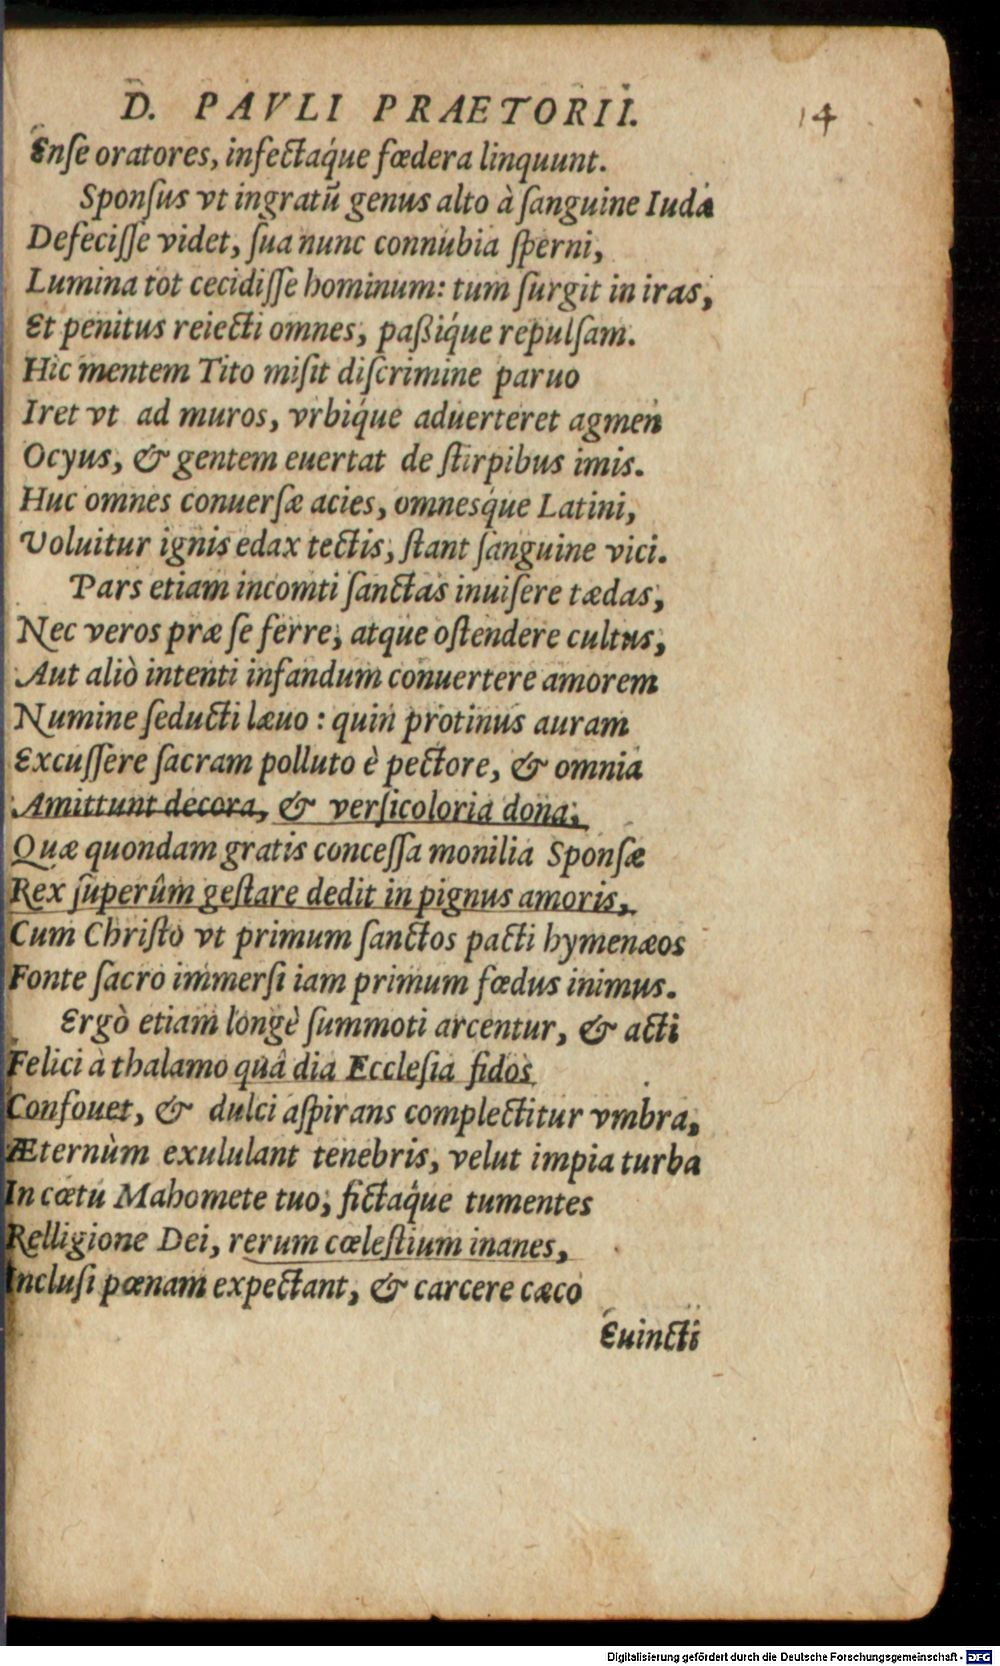 D. PAVLI PRAETORII. 14
Ense oratores, infectaq́ue fœdera linquunt.
Sponsus vt ingratũ genus alto à sanguine Iuda
Defecisse videt, sua nunc connubia sperni,
Lumina tot cecidisse hominum: tum surgit in iras,
Et penitus reiecti omnes, paßiq́ue repulsam.
Hic mentem Tito misit discrimine paruo
Iret vt ad muros, vrbiq́ue aduerteret agmen
Ocyus, & gentem euertat de stirpibus imis.
Huc omnes conuersæ acies, omnesq́ue Latini,
Voluitur ignis edax tectis, stant sanguine vici.
Pars etiam incomti sanctas inuisere tædas,
Nec veros præ se ferre, atque ostendere cultus,
Aut aliò intenti infandum conuertere amorem
Numine seducti læuo : quin protinus auram
Excussere sacram polluto è pectore, & omnia
Amittunt decora, & versicoloria dona,
Quæ quondam gratis concessa monilia Sponsæ
Rex superûm gestare dedit in pignus amoris,
Cum Christo vt primum sanctos pacti hymenæos
Fonte sacro immersi iam primum fœdus inimus.
Ergò etiam longè summoti arcentur, & acti
Felici à thalamo quâ dia Ecclesia fidos
Confouet, & dulci aspirans complectitur vmbra,
Æternùm exululant tenebris, velut impia turba
In cœtu Mahomete tuo, fictaq́ue tumentes
Relligione Dei, rerum cœlestium inanes,
Inclusi pœnam expectant, & carcere cæco
Euincti
Digitalisierung gefördert durch die Deutsche Forschungsgemeinschaft - DFG